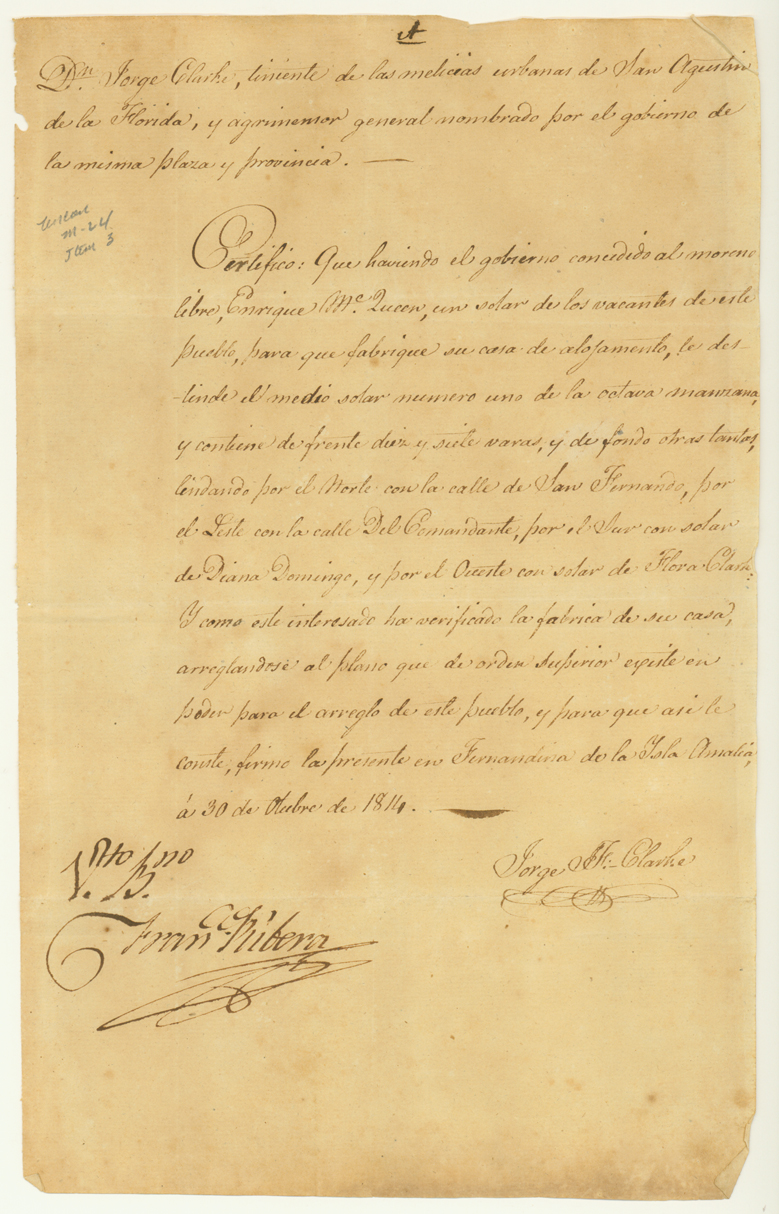 A
Dn. Jorge Clarke, tiniente de las melicias urbanas de San Agustin
de la Florida, y agrimensor general nombrado por el gobierno de
la misma plaza y provincia. —
m-24
Item 3
Certifico: Que haviendo el gobierno concedido al moreno
libre, Enrique Mc. Queen, un solar de los vacantes de este
pueblo, para que fabrique su casa de alojamento, le des-
-linde el medio solar numero uno de la octava manzana,
y contiene de frente diez y siete varas, y de fondo otras tantas,
lindando por el Norte con la calle de San Fernando, por
el Leste con la calle Del Comandante, por el Sur con solar
de Diana Domingo, y por el Oueste con solar de Flora Clark:
Y como este interesado ha verificado la fabrica de su casa,
arreglandose al plano que de orden superior existe en
poder para el arreglo de este pueblo, y para que asi le
conste, firmo la presente en Fernandina de la Isla Amalia,
á 30 de Otubre de 1814. —
Jorge J. F. Clarke
Vto. Bno.
Franco. Ribera